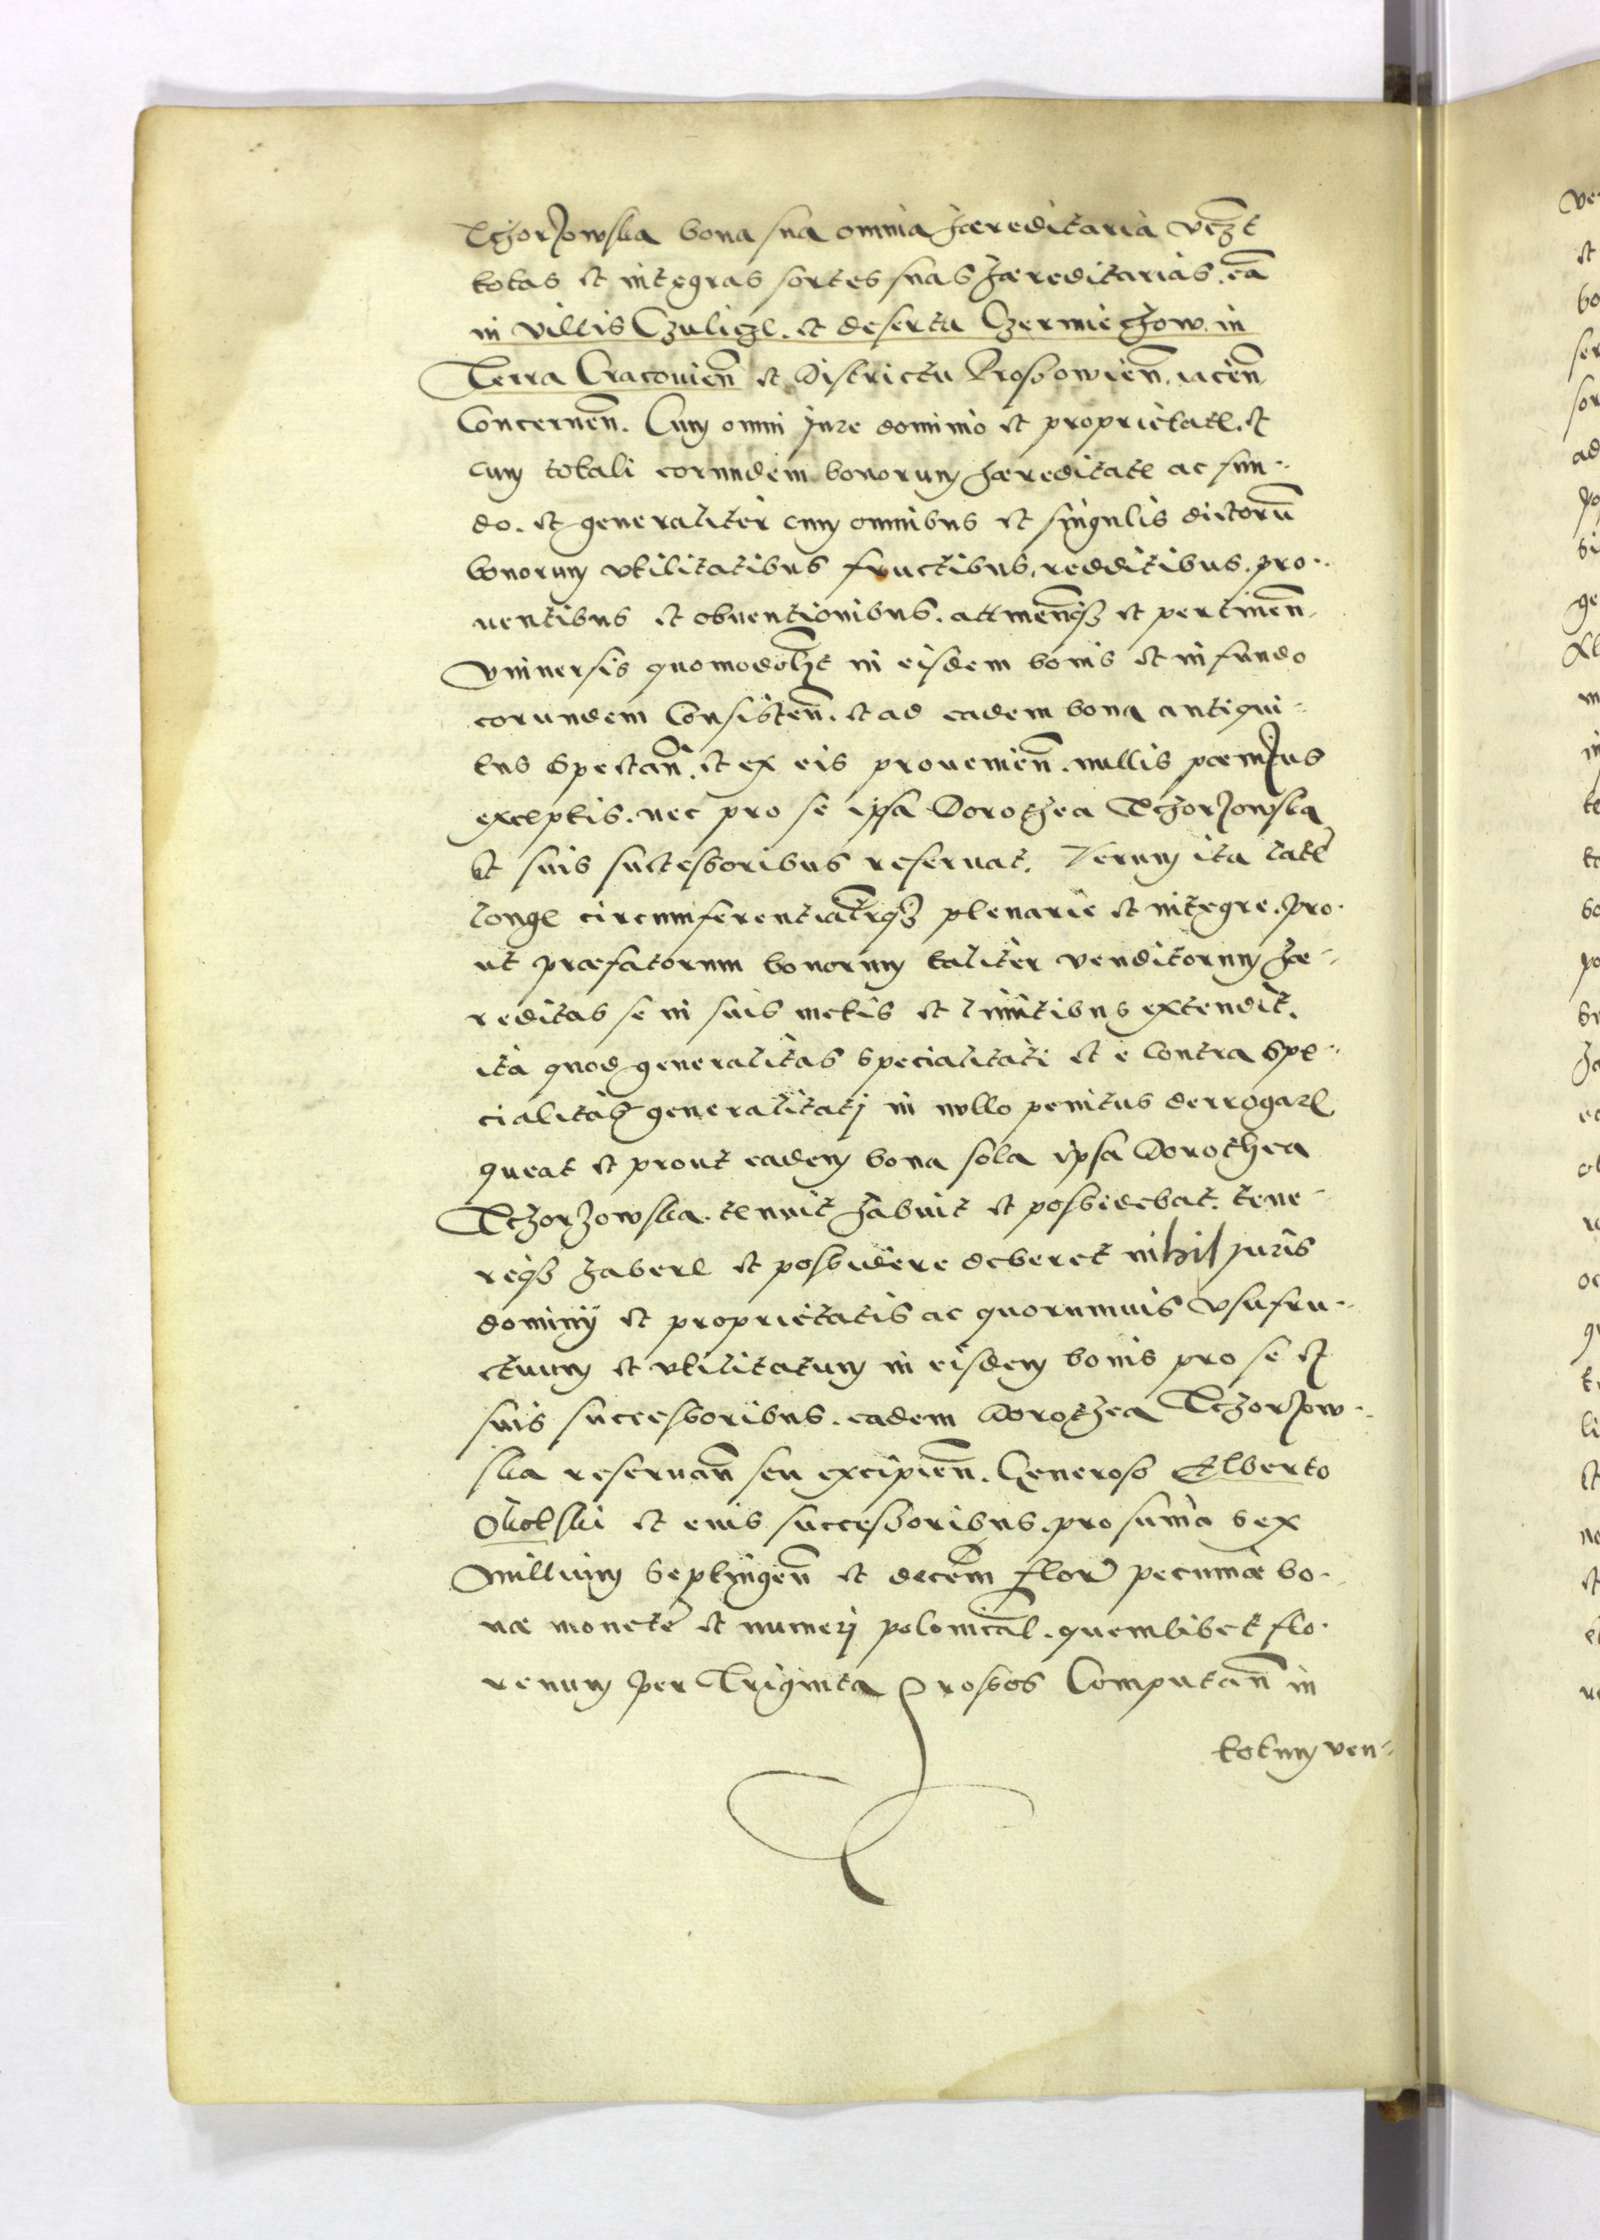 Tchorzowska bona sua omnia hæreditaria vczt
totas et integras sortes suas hæreditarias. eã
in villis Czulicze. et deserta Czermiechow. in
Terra Cracouien̄ et Districtu Proszowien̄. iacen̄
Concernen̄. Cum omni jure dominio et proprietate. et
cum totali eorundem bonorum hæreditate ac fun-
do. et generaliter cum omnibus et singulis dictorũ
bonorum vtilitatibus fructibus, redditibus. pro-
uentibus et obuentionibus. attinen̄q₃ et pertinen̄
vniuersis quomodolȝt in eisdem bonis et in fundo
eorundem Consisten̄. et ad eadem bona antiqui-
tus spectan̄. et ex eis prouenien̄. nullis pœnitus
exceptis. nec pro se ipsa Dorothea Tchorzowska
et suis successoribus reseruat. Verum ita late
longe circumferentiatq₃ plenarie et integre. pro-
ut præfatorum bonorum taliter venditorum hæ-
reditas se in suis metis et limitibus extendit.
ita quod generalitas specialitati et e contra spe-
cialitas generalitatj in nullo penitus derrogare
queat et prout eadem bona sola ipsa Dorothea
Tchorzowska. tenuit habuit et possidebat. tene-
req₃ habere et possidere deberet nihil juris
dominij et proprietatis ac quorumuis vsufru-
ctuum et vtilitatum in eisdem bonis pro se et
suis successoribus. eadem Dorothea Tchorzow-
ska reseruan̄ seu excipien̄. Generoso Elberto
Okolski et eius successoribus. pro summa sex
millium septingen̄ et decem flor pecuniæ bo-
næ monete et numerj polonical. quemlibet flo-
renum per Triginta grossos Computan̄ in
totum ven-